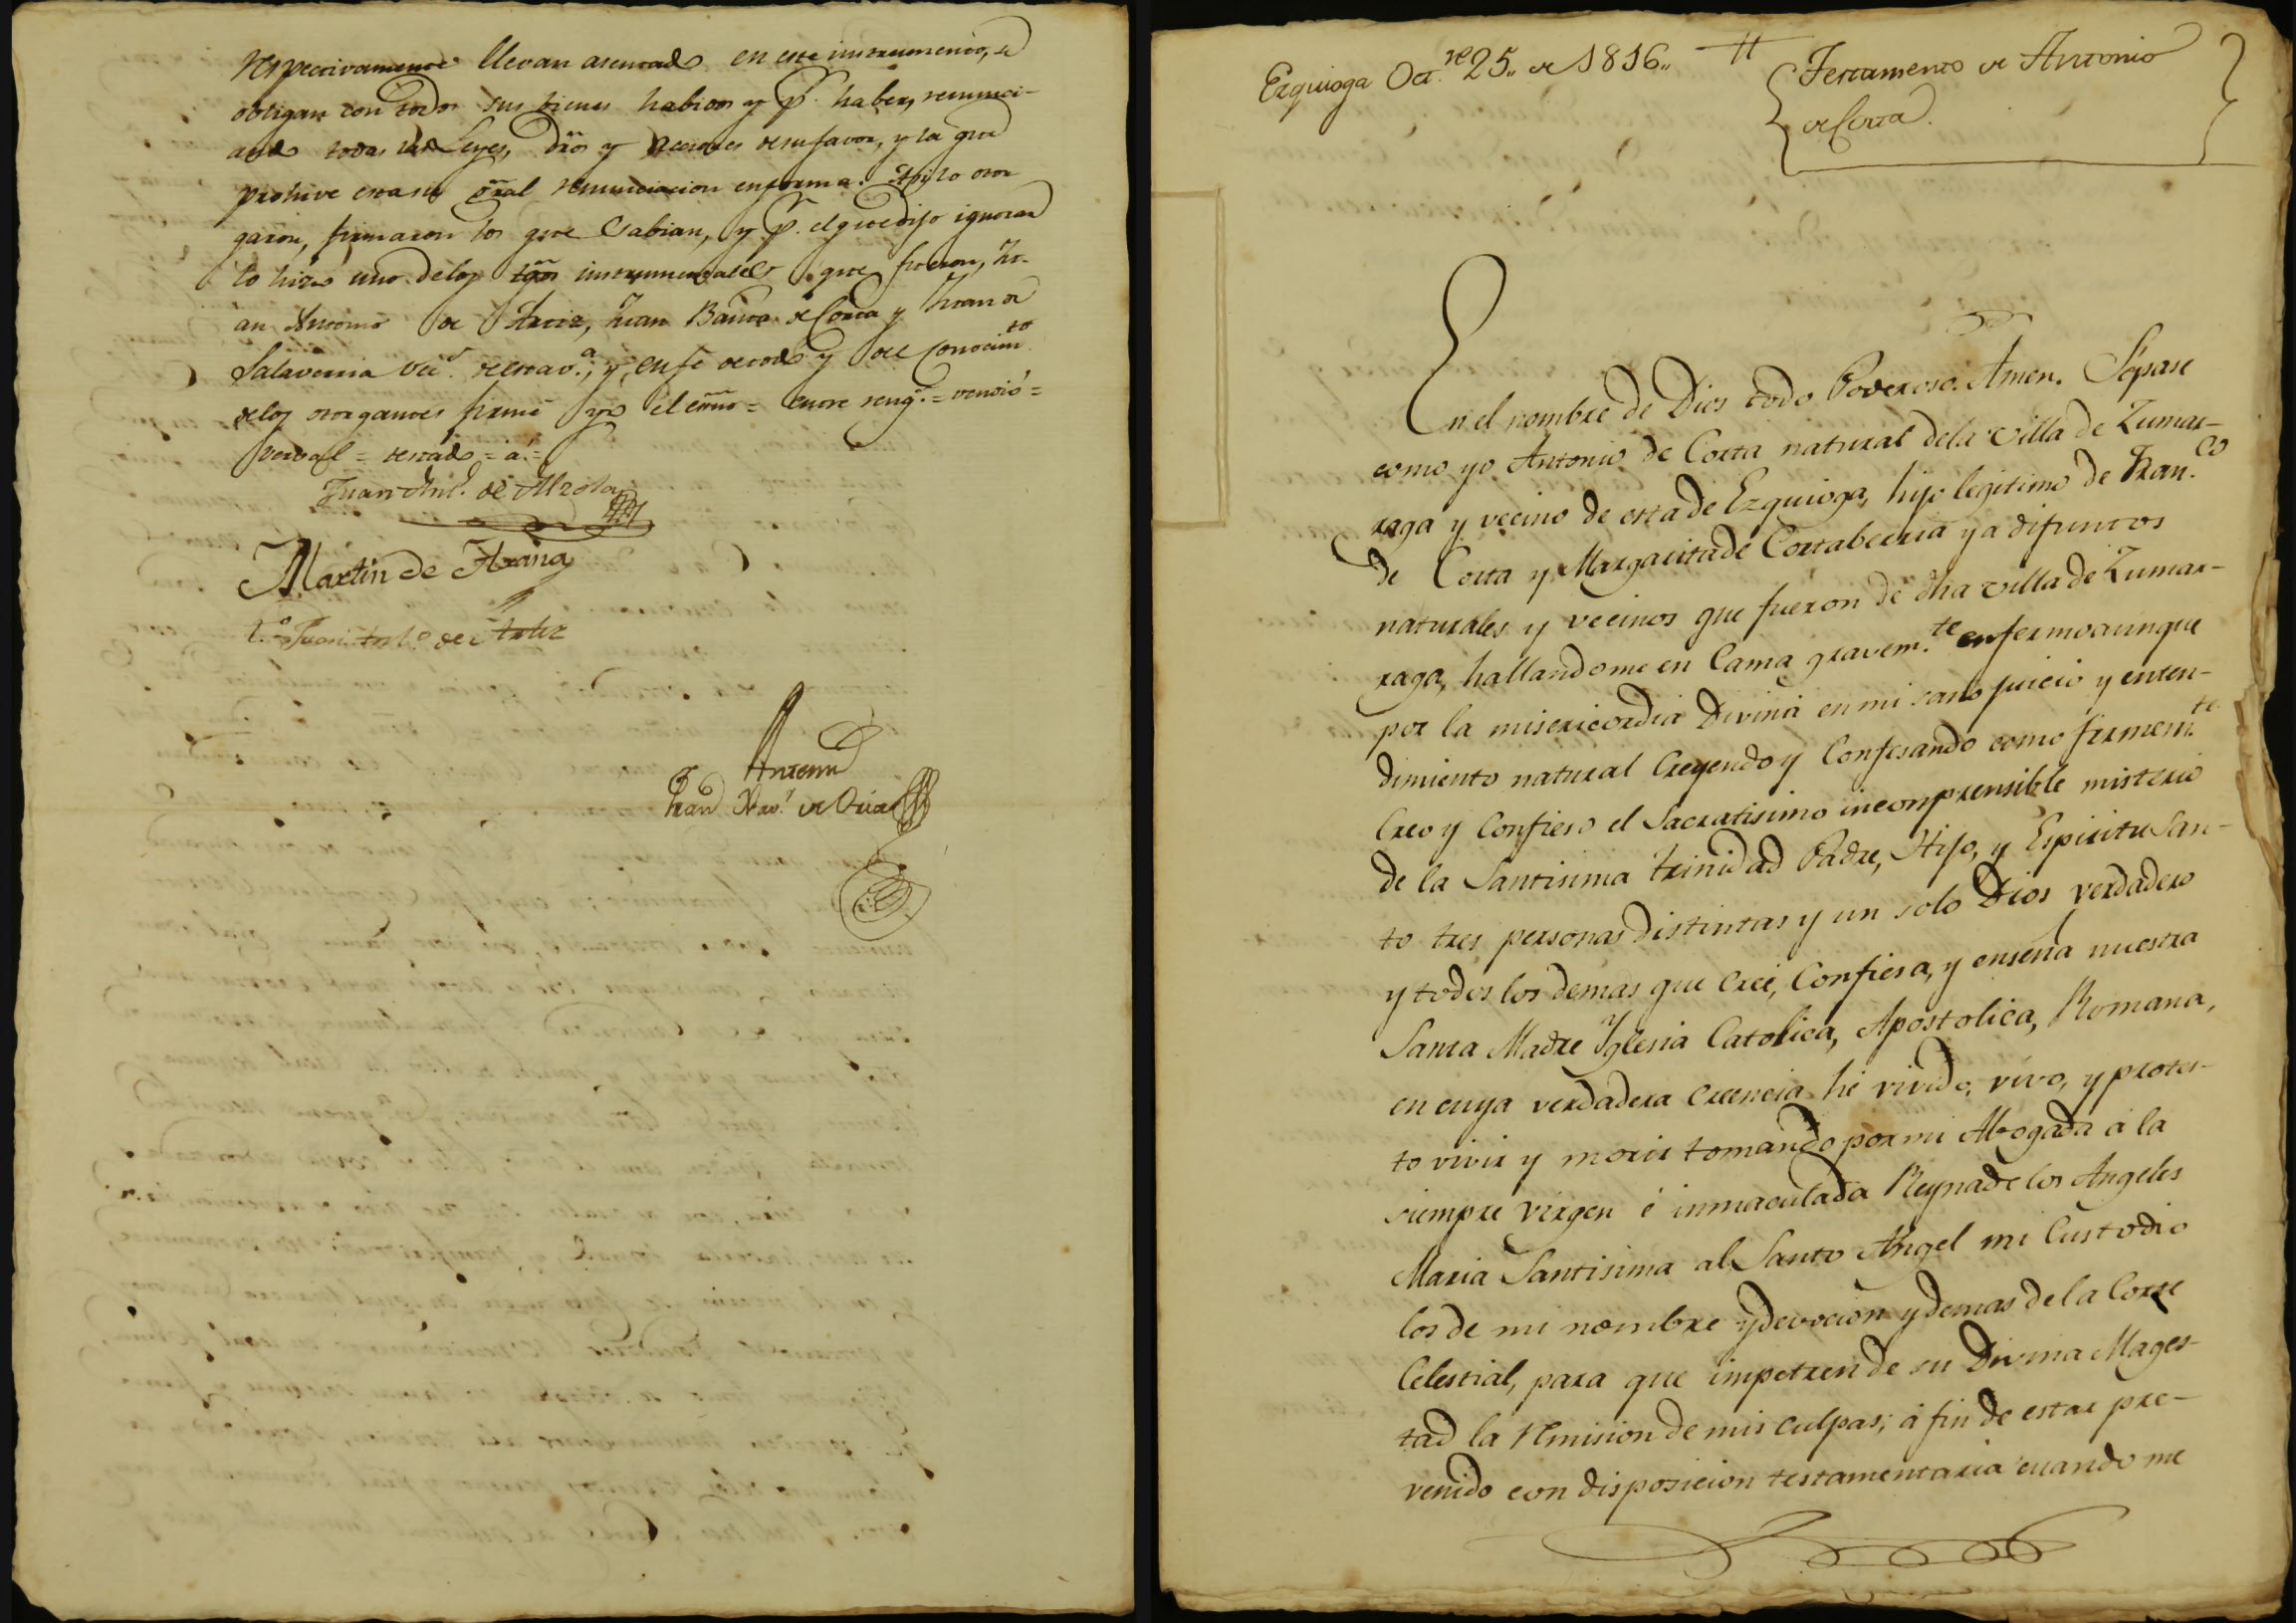 respectivamente llevan asentado en este instrumento, se
obligan con todos sus bienes habidos y p.r haber, renunci-
ando todas las Leyes, dr̃os y acciones de su favor, y la que
prohive esta su gr̃al renunciacion en forma. Asi lo otor
garon, firmaron los que Sabian, y p.r el que dijo ignorar
lo hizo uno delos tg̃os instrumentales que fueron, Ju-
an Antonio de Artiz, Juan Bau.ta de Corta y Juan de
Salaverria vec.s de esta v.a; y, en fe de todo y del conocim.to
delos otorgantes firmé yo el esño = entre reng.s = vendió =
verbal = testado = á =
Juan Ant.o de Alzola
Martin de Arana
t.o Juan Ant.o de Artiz
Antemi
Juan Xav.r de Oria
Ezquioga Oct.re 25,, de 1816,,
Testamento de Antonio
de Corta.
En el nombre de Dios todo Poderoso. Amen. Sépase
como yo Antonio de Corta natural dela villa de Zumar-
raga y vecino de esta de Ezquioga, hijo legitimo de Fran.co
de Corta y Margarita de Cortaberria ya difuntos
naturales y vecinos que fueron de dha villa de Zumar-
raga, hallandome en Cama gravem.te enfermo aunque
por la misericordia Divina en mi sano juicio y enten-
dimiento natural Creyendo y Confesando como firmem.te
Creo y Confieso el Sacratisimo incomprensible misterio
de la Santisima trinidad Padre, Hijo, y Espiritu San-
to tres personas distintas y un solo Dios verdadero
y todos los demas que Creé, Confiesa, y enseña nuestra
Santa Madre Yglesia Catolica, Apostolica, Romana,
en cuya verdadera Creencia hé vivido, vivo, y protes-
to vivir y morir tomando por mi Abogada á la
siempre Virgen é inmaculada Reyna de los Angeles
Maria Santisima al Santo Angel mi Custodio
los de mi nombre y devocion y demas de la Corte
Celestial, para que impetren de su Divina Mages-
tad la remision de mis culpas; á fin de estar pre-
venido con disposicion testamentaria cuando me